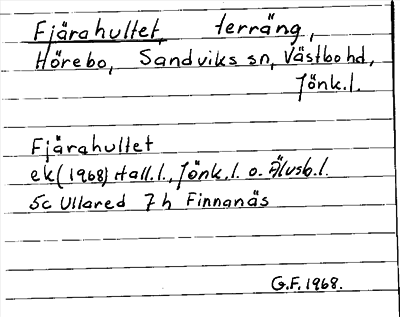 Fjärahultet, terräng,
Hörebo, Sandviks sn, Västbo hd,
Jönk.l.
Fjärahultet
ek (1968) Hall.l., Jönk.l. o. Älvsb.l.
5c Ullared 7h Finnanäs
G.F. 1968.